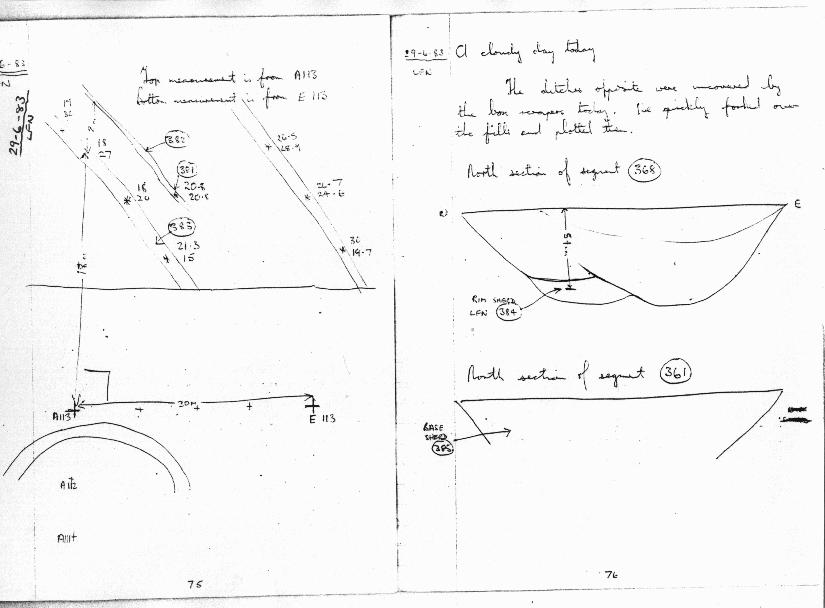 29-6-83
LFN
Top measurement is from A113
bottom measurement is from E 113
382
381
18
27
18
20
20.8
20.8
383
21.3
15
26.5
28.9
26.7
24.6
30
19.7
18m
20m
A113
E 113
A112
A111
75
29-6-83
LFN
A cloudy day today
The ditches opposite were uncovered by
the box scrapers today. I've quickly
the fills and plotted them.
North section of segment 368
E
RIM SHERD
LFN 384
North section of segment 361
BASE
SHERD
385
76